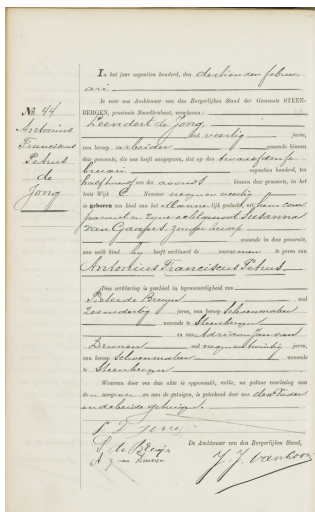 In het jaar negentien honderd, den dertienden febru-
ari
is voor ons Ambtenaar van den Burgerlijken Stand der Gemeente STEEN-
BERGEN, provincie Noordbrabant, verschenen:
No. 44
Antonius
Franciscus
Petrus
de
Jong
Leendert de Jong
oud veertig jaren,
van beroep arbeider wonende binnen
deze gemeente, die ons heeft aangegeven, dat op den twaalfden fe-
bruari negentien honderd, ten
half twaalf des avonds binnen deze gemeente, in het
huis Wijk C Nummer negen en veertig
is geboren een kind van het Mannelijk geslacht, uit hem com-
parant en zijne echtgenoot Susanna
van Gaapers, zonder beroep
wonende in deze gemeente,
aan welk kind hij heeft verklaard de voornamen te geven van
Antonius Franciscus Petrus
Deze verklaring is geschied in tegenwoordigheid van
Pieter de Bruyn oud
zesendertig jaren, van beroep Schoenmaker
wonende te Steenbergen
en van Adriaan Jan van
Drunen oud negenentwintig jaren,
van beroep Schoenmaker wonende te
Steenbergen
Waarvan door ons deze akte is opgemaakt, welke, na gedane voorlezing aan
den aangever en aan de getuigen, is geteekend door ons, den Vader
en de beide getuigen.
L d Jong
de Bruijn
A J van Drunen
De Ambtenaar van den Burgerlijken Stand,